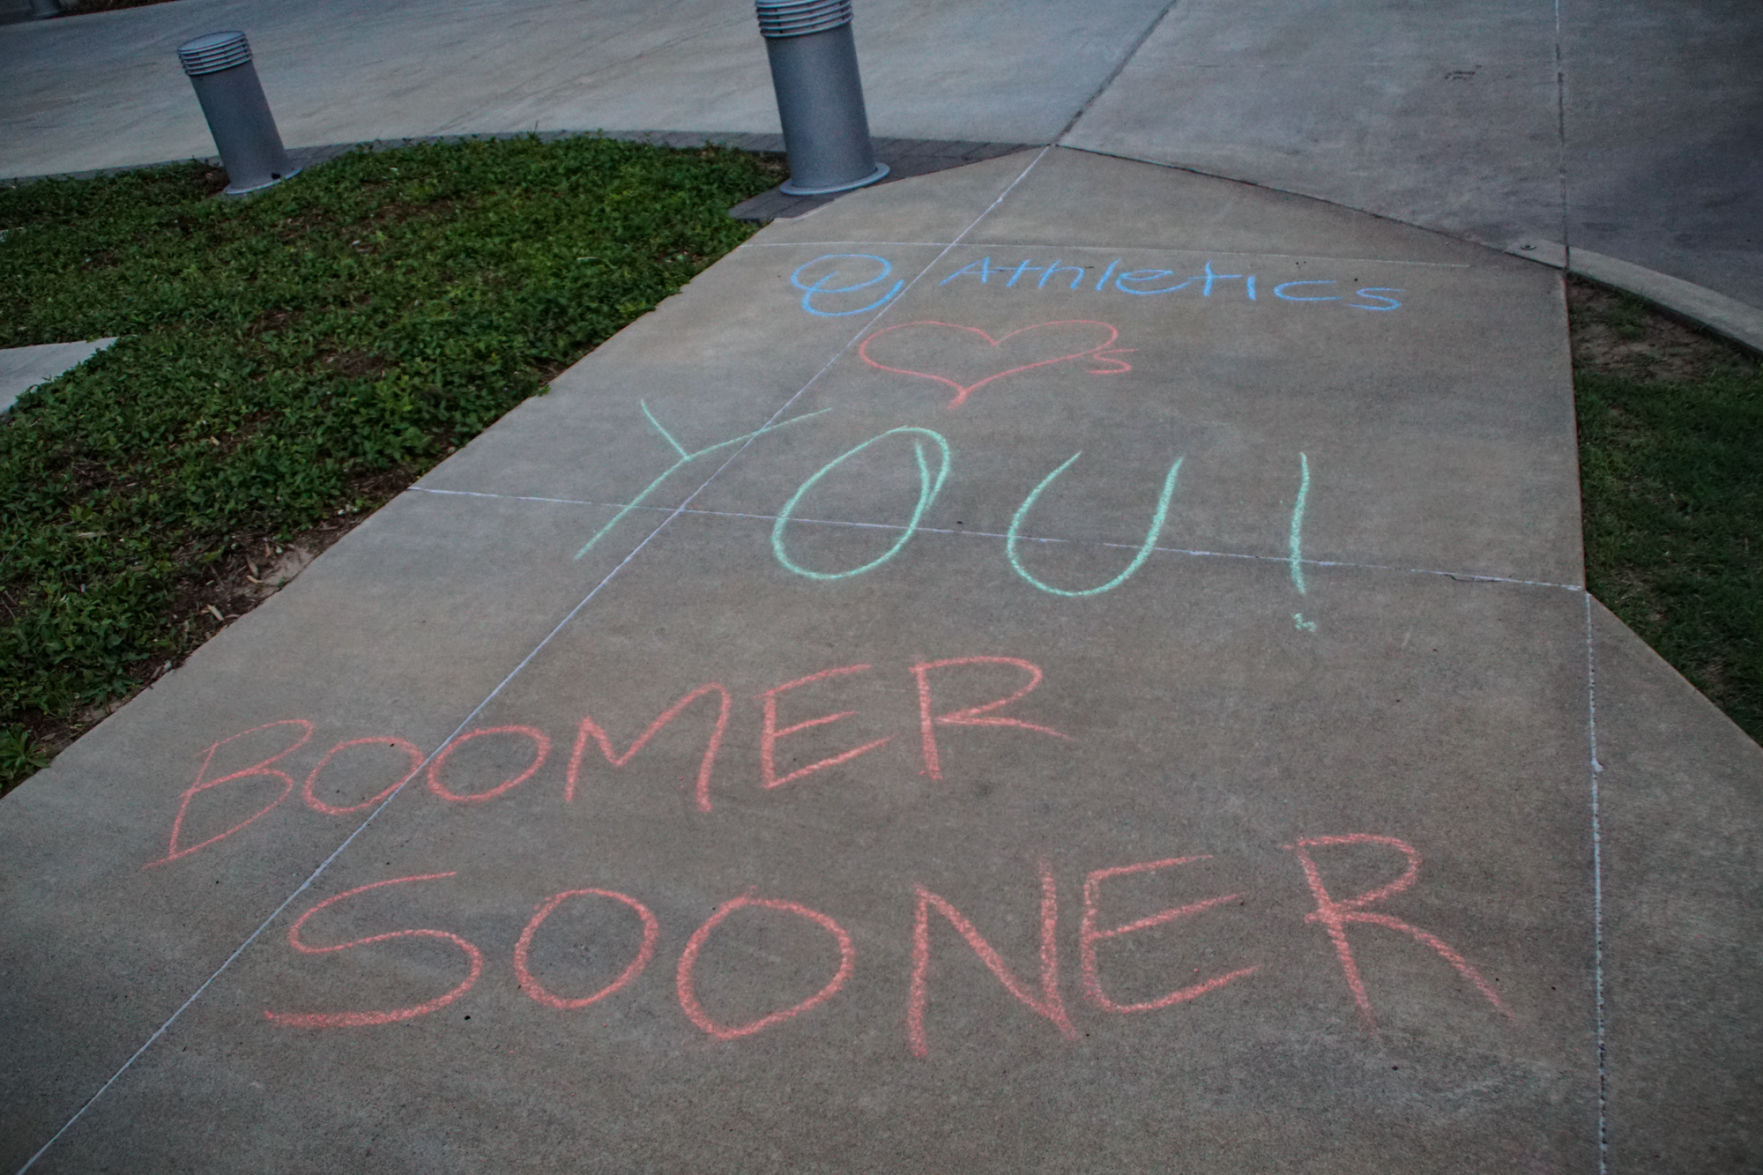 @ Athletics
♥s
YOU!
BOOMER
SOONER